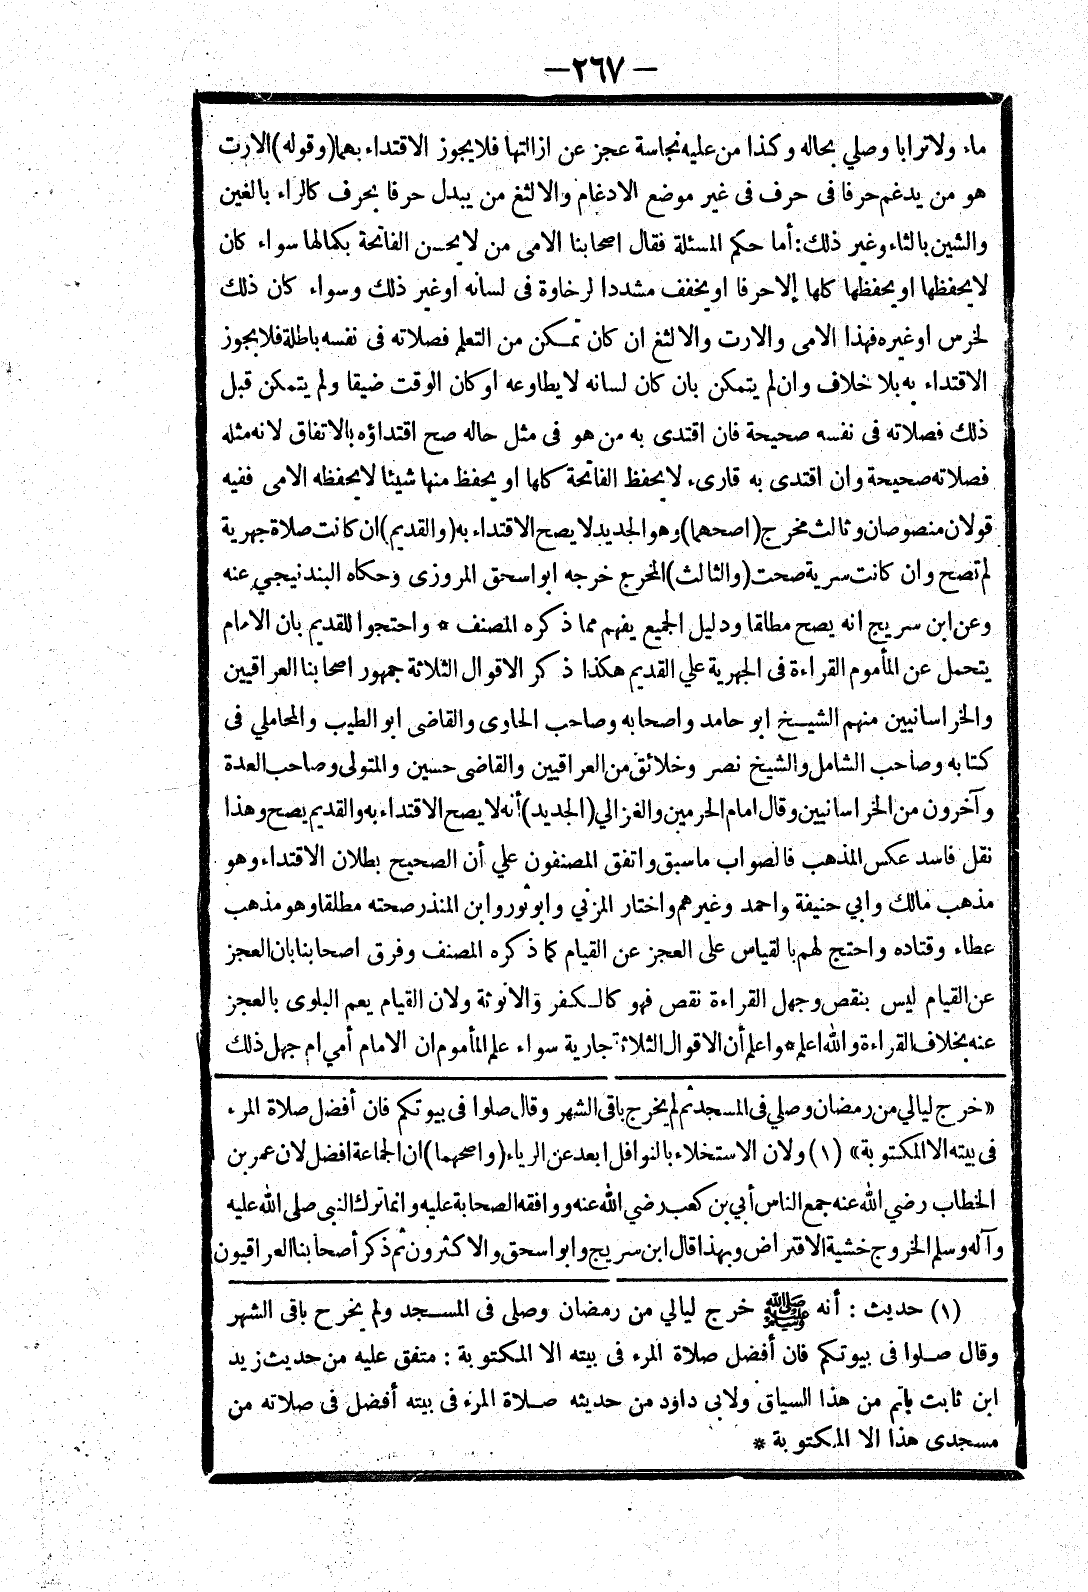 — ٢٦٧ —
ماء ولا ترابا وصلي بحاله وكذا من عليه نجاسة عجز عن ازالتها فلا يجوز الاقتداء بهما (وقوله) الارت
هو من يدغم حرفا فى حرف فى غير موضع الادغام والالثغ من يبدل حرفا بحرف كالراء بالغين
والشين بالثاء وغير ذلك : أما حكم المسئلة فقال اصحابنا الامى من لا يحسن الفاتحة بكمالها سواء كان
لا يحفظها او يحفظها كلها إلا حرفا او يخفف مشددا لرخاوة فى لسانه او غير ذلك وسواء كان ذلك
لخرس او غيره فهذا الامى والارت والالثغ ان كان تمكن من التعلم فصلاته فى نفسه باطلة فلا يجوز
الاقتداء به بلا خلاف وان لم يتمكن بان كان لسانه لا يطاوعه او كان الوقت ضيقا ولم يتمكن قبل
ذلك فصلاته فى نفسه صحيحة فان اقتدى به من هو فى مثل حاله صح اقتداؤه بالاتفاق لانه مثله
فصلاته صحيحة وان اقتدى به قارىء لا يحفظ الفاتحة كلها او يحفظ منها شيئا لا يحفظه الامى ففيه
قولان منصوصان وثالث مخرج (اصحهما) وهو الجديد لا يصح الاقتداء به (والقديم) ان كانت صلاة جهرية
لم تصح وان كانت سرية صحت (والثالث) المخرج خرجه ابو اسحق المروزى وحكاه البندنيجي عنه
وعن ابن سريج انه يصح مطلقا ودليل الجميع يفهم مما ذكره المصنف * واحتجوا للقديم بان الامام
يتحمل عن المأموم القراءة فى الجهرية علي القديم هكذا ذكر الاقوال الثلاثة جمهور اصحابنا العراقيين
والخراسانيين منهم الشيخ ابو حامد واصحابه وصاحب الحاوى والقاضى ابو الطيب والمحاملي فى
كتابه وصاحب الشامل والشيخ نصر وخلائق من العراقيين والقاضى حسين والمتولى وصاحب العدة
وآخرون من الخراسانيين وقال امام الحرمين والغزالي (الجديد) أنه لا يصح الاقتداء به والقديم يصح وهذا
نقل فاسد عكس المذهب فالصواب ما سبق واتفق المصنفون علي أن الصحيح بطلان الاقتداء وهو
مذهب مالك وابي حنيفة واحمد وغيرهم واختار المزني وابو ثور وابن المنذر صحته مطلقا وهو مذهب
عطاء وقتاده واحتج لهم بالقياس على العجز عن القيام كما ذكره المصنف وفرق اصحابنا بان العجز
عن القيام ليس بنقص وجهل القراءة نقص فهو كالكفر والانوثة ولان القيام يعم البلوى بالعجز
عنه بخلاف القراءة والله اعلم * واعلم أن الاقوال الثلاثة جارية سواء علم المأموم ان الامام أمي ام جهل ذلك
«خرج ليالي من رمضان وصلي فى المسجد ثم لم يخرج باقى الشهر وقال صلوا فى بيوتكم فان أفضل صلاة المرء
فى بيته الا المكتوبة» (١) ولان الاستخلاء بالنوافل ابعد عن الرياء (واصحهما) ان الجماعة افضل لان عمر بن
الخطاب رضي الله عنه جمع الناس أبي بن كعب رضي الله عنه ووافقه الصحابة عليه وانما ترك النبى صلى الله عليه
وآله وسلم الخروج خشية الافتراض وبهذا قال ابن سريج وابو اسحق والاكثرون ثم ذكر أصحابنا العراقيون
(١) حديث : أنه ﷺ خرج ليالي من رمضان وصلى فى المسجد ولم يخرح باقى الشهر
وقال صلوا فى بيوتكم فان أفضل صلاة المرء فى بيته الا المكتوبة : متفق عليه من حديث زيد
ابن ثابت باتم من هذا السياق ولابى داود من حديثه صلاة المرء فى بيته أفضل فى صلاته من
مسجدى هذا الا المكتوبة *